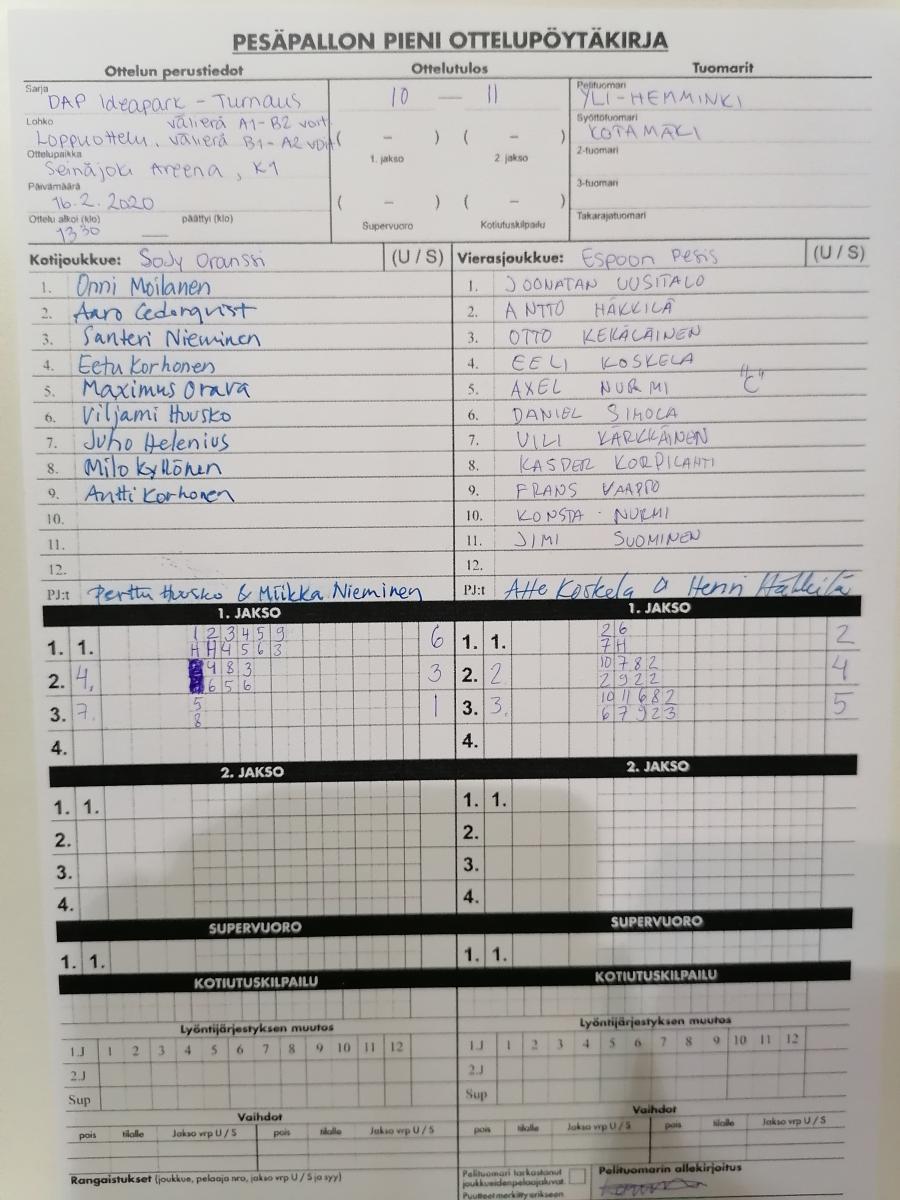 PESÄPALLON PIENI OTTELUPÖYTÄKIRJA
Ottelun perustiedot Ottelutulos Tuomarit
Sarja
DAP Ideapark - Turnaus
Lohko välierä A1-B2 voit
Loppuottelu. välierä B1-A2 voit
Ottelupaikka
Seinäjoki Areena, K1
Päivämäärä
16.2.2020
Ottelu alkoi (klo) päättyi (klo)
1330 —
10 — 11
( - ) ( - )
1. jakso 2. jakso
( - ) ( - )
Supervuoro Kotiutuskilpailu
Pelituomari
YLI-HEMMINKI
Syöttötuomari
KOTAMÄKI
2-tuomari
3-tuomari
Takarajatuomari
Kotijoukkue: SoJy Oranssi (U / S)
1. Onni Moilanen
2. Aaro Cederqvist
3. Santeri Nieminen
4. Eetu Korhonen
5. Maximus Orava
6. Viljami Huusko
7. Juho Helenius
8. Milo Kyllönen
9. Antti Korhonen
10.
11.
12.
PJ:t Perttu Huusko & Miikka Nieminen
Vierasjoukkue: Espoon Pesis (U / S)
1. JOONATAN UUSITALO
2. ANTTO HÄKKILÄ
3. OTTO KEKÄLÄINEN
4. EELI KOSKELA
5. AXEL NURMI "C"
6. DANIEL SIMOLA
7. VILI KÄRKKÄINEN
8. KASPER KORPILAHTI
9. FRANS VAAPPO
10. KONSTA NURMI
11. JIMI SUOMINEN
12.
PJ:t Atte Koskela & Henri Häkkilä
1. JAKSO
1. 1. 1 2 3 4 5 9 6
H H 4 5 6 3
2. 4, 4 8 3 3
6 5 6
3. 7. 5 1
8
4.
1. JAKSO
1. 1. 2 6 2
7 H
2. 2 10 7 8 2 4
2 9 2 2
3. 3. 10 11 6 8 2 5
6 7 9 2 3
4.
2. JAKSO
1. 1.
2.
3.
4.
2. JAKSO
1. 1.
2.
3.
4.
SUPERVUORO
1. 1.
SUPERVUORO
1. 1.
KOTIUTUSKILPAILU
KOTIUTUSKILPAILU
Lyöntijärjestyksen muutos
1.J 1 2 3 4 5 6 7 8 9 10 11 12
2.J
Sup
Lyöntijärjestyksen muutos
1.J 1 2 3 4 5 6 7 8 9 10 11 12
2.J
Sup
Vaihdot
pois tilalle Jakso vrp U / S pois tilalle Jakso vrp U / S
Vaihdot
pois tilalle Jakso vrp U / S pois tilalle Jakso vrp U / S
Rangaistukset (joukkue, pelaaja nro, jakso vrp U / S ja syy)
Pelituomari tarkastanut
joukkueidenpelaajaluvat.
Puutteet merkitty erikseen
Pelituomarin allekirjoitus